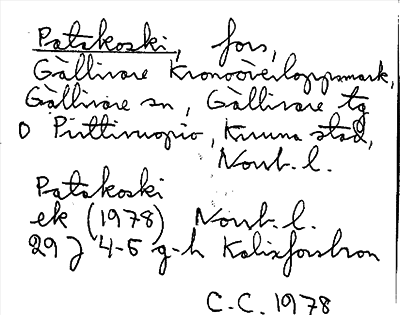 Patakoski, fors,
Gällivare Kronoöverloppsmark,
Gällivare sn, Gällivare tg
o Piittivuopio, Kiruna stad,
Norrb. l.
Patakoski
ek (1978) Norrb. l.
29 J 4-5 g-h Kalixforsbron
C.C. 1978